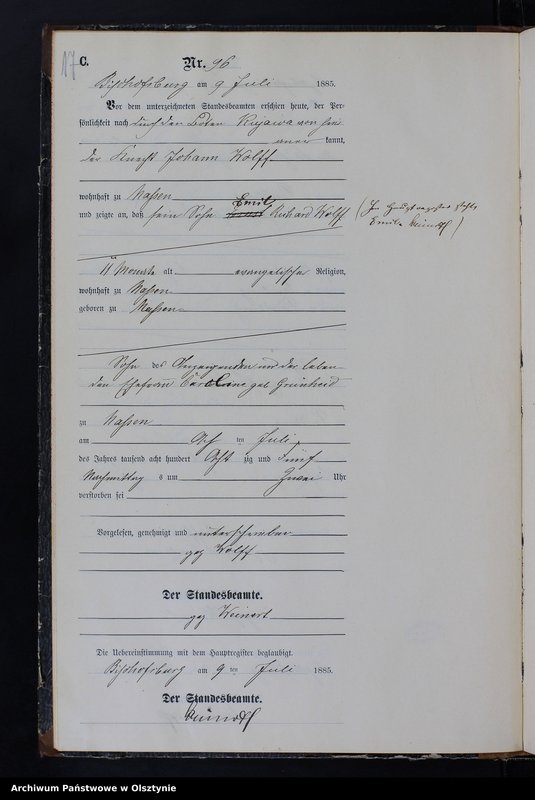 17 C.
Nr. 96
Bischofsburg am 9 Juli 1885.
Vor dem unterzeichneten Standesbeamten erschien heute, der Per-
sönlichkeit nach durch den Boten Kujawa von hier
kannt,
der Knecht Johann Wolff
wohnhaft zu Nassen
Emil
und zeigte an, daß sein Sohn Richard Wolff (Im Hauptregister steht:
Emil. )
11 Monate alt evangelischer Religion,
wohnhaft zu Nassen
geboren zu Nassen
Sohn des Anzeigenden und der leben-
den Ehefrau Caroline geb Grünheid
zu Nassen
am Acht ten Juli
des Jahres tausend acht hundert Acht zig und Fünf
Nachmittag s um Zwei Uhr
verstorben sei
Vorgelesen, genehmigt und unterschrieben
gez Wolff
Der Standesbeamte.
gez Weinert
Die Uebereinstimmung mit dem Hauptregister beglaubigt.
Bischofsburg am 9 ten Juli 1885.
Der Standesbeamte.
Archiwum Państwowe w Olsztynie